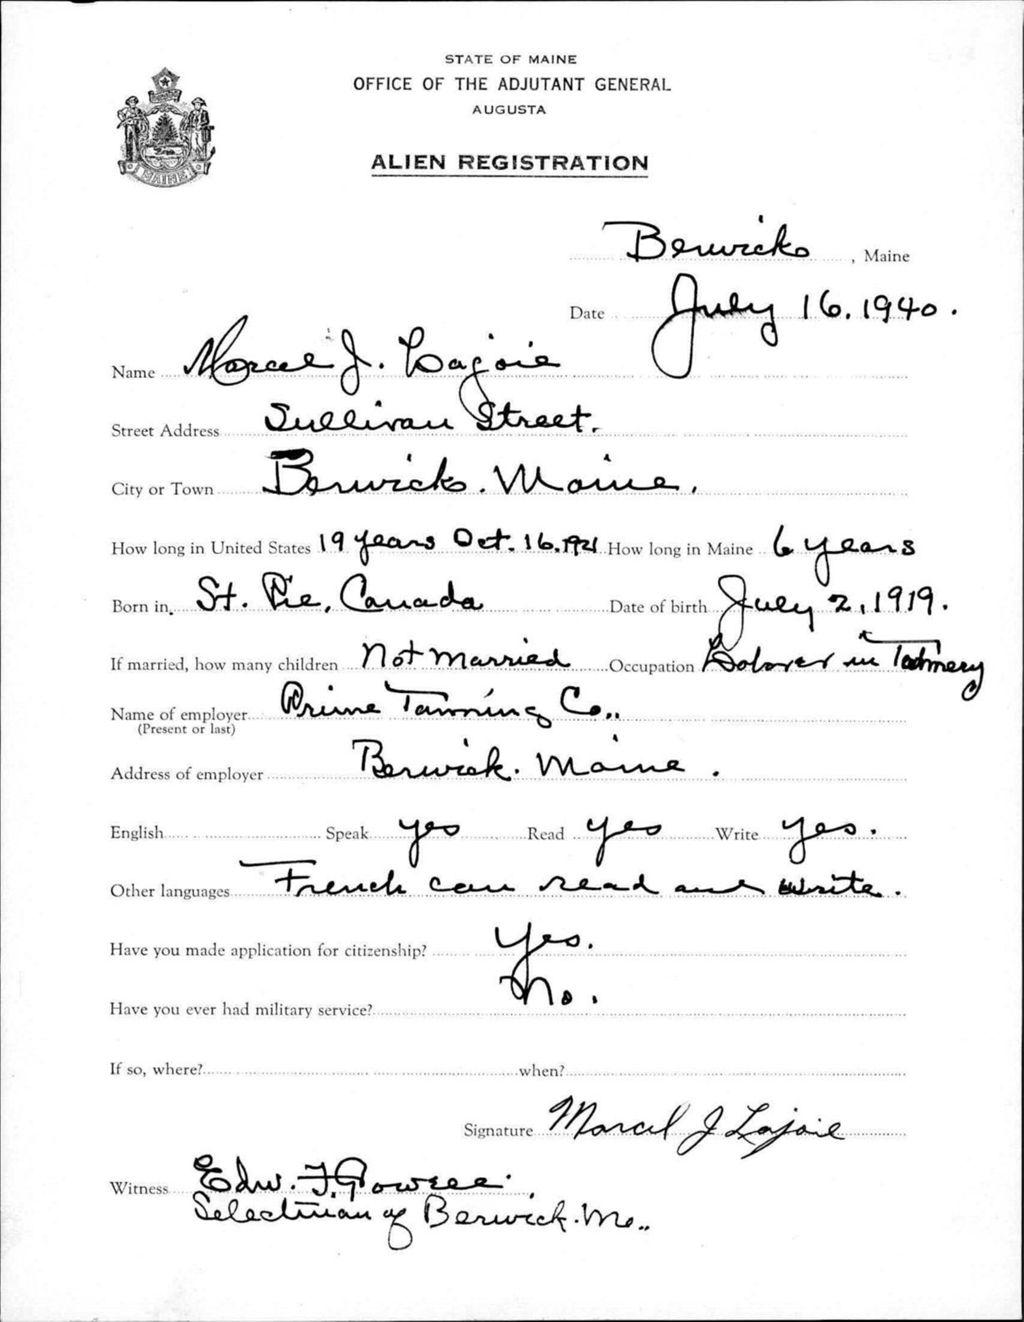 STATE OF MAINE
OFFICE OF THE ADJUTANT GENERAL
AUGUSTA
ALIEN REGISTRATION
MAINE
Berwick, Maine
Date July 16, 1940.
Name Marcel J. Lajoie
Street Address Sullivan Street.
City or Town Berwick. Maine.
How long in United States 19 years Oct. 16. 1921 How long in Maine 6 years
Born in St. Pie, Canada Date of birth July 2, 1919.
If married, how many children Not Married Occupation Laborer in Tannery
Name of employer Prime Tanning Co.,
(Present or last)
Address of employer Berwick. Maine.
English Speak yes Read yes Write yes.
Other languages French can read and write.
Have you made application for citizenship? Yes.
Have you ever had military service? No.
If so, where? when?
Signature Marcel J Lajoie
Witness Edw. F.
Selectman of Berwick. Me.,